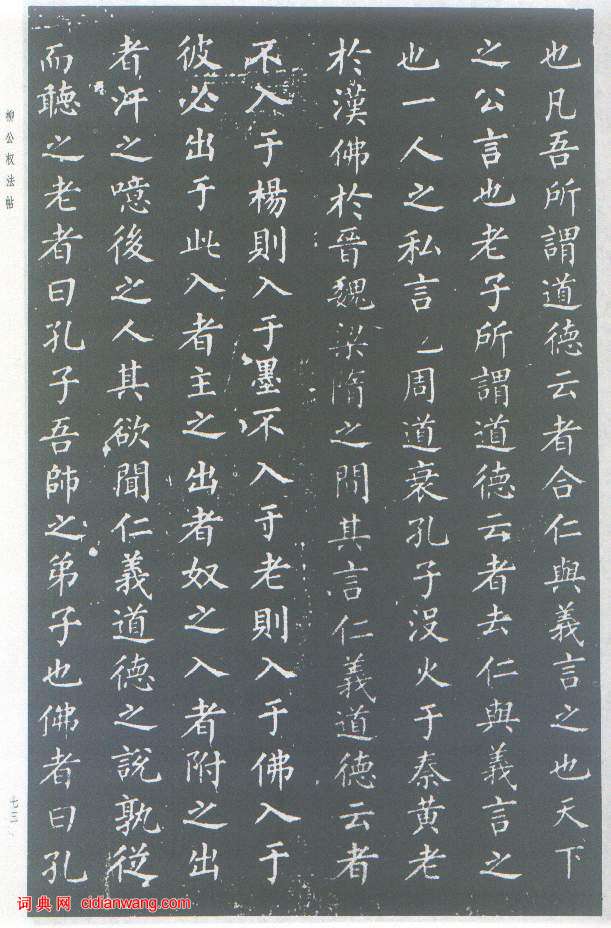 也凡吾所謂道德云者合仁與義言之也天下
之公言也老子所謂道德云者去仁與義言之
也一人之私言周道衰孔子没火于秦黃老
於漢佛於晉魏梁隋之間其言仁義道德云者
不入于楊則入于墨不入于老則入于佛入于
彼必出于此入者主之出者奴之入者附之出
者汙之噫後之人其欲聞仁義道德之說孰從
而聽之老者曰孔子吾師之弟子也佛者曰孔
柳公权法帖
七三
词典网 cidianwang.com